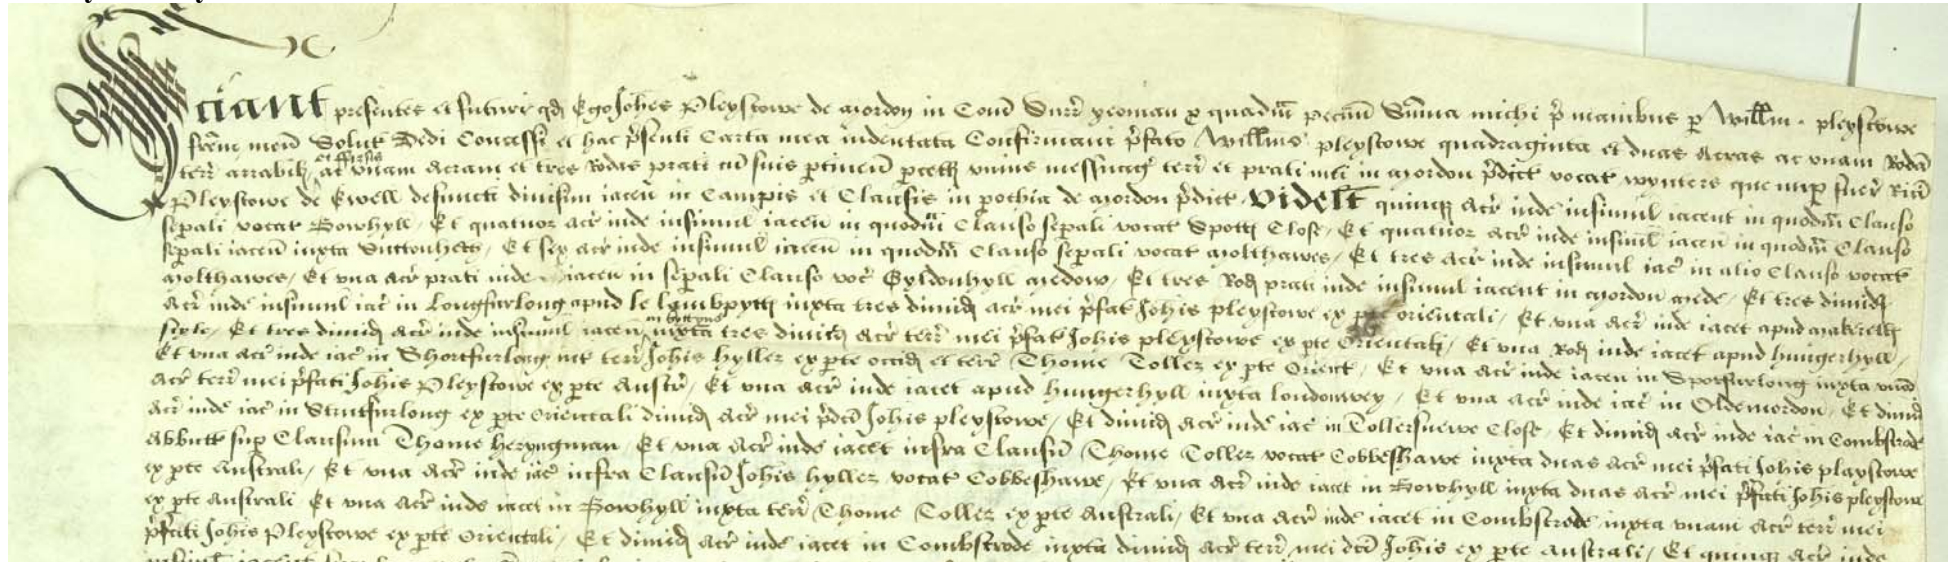 Sciant presentes et futuri qd Ego Johes Pleystowe de mordon in Com Surr yeoman p quadm pecun Summa michi pre manibus p Willm pleystowe
frem meum Solut Dedi Concessi et hac psenti Carta mea indentata Confirmavi pfato Willmo pleystowe quadraginta et duas Acras ac unam Rodam
terr arrabit et ffirsis ac unam acram et tres Rodas prati cu suis ptinen pcell unius messuag terr et prati mei in mordon pdict vocat wynters que nup fuer Rici
Pleystowe de Ewell defuncti divisim iacen in Campis et Clausis in pochia de mordon pdict Videlt quinqz Acr inde insimul iacent in quodm Clauso
sepali vocat Bowhyll / Et quatuor acr inde insimul iacen in quodm Clauso sepali vocat Spotts Close / Et quatuor acr inde insimul iacen in quodm Clauso
sepali iacen iuxta Suttonheth / Et sex acr inde insimul iacen in quodm Clauso sepali vocat molthawes / Et tres acr inde insimul iac in alio Clauso vocat
molthawes / Et una acr prati inde iacen in sepali Clauso voc Gyldonhyll medow / Et tres Rod prati inde insimul iacent in mordon mede / Et tres dimid
acr inde insimul iac in Longfurlong apud le lambpytts iuxta tres dimid acr mei pfat Johis pleystowe ex pte orientali / Et una acr inde iacet apud makerells
style / Et tres dimid acr inde insimul iacen iuxta tres dimid acr terr mei pfat Johis pleystowe ex pte Orientali / Et una Rod inde iacet apud hungerhyll /
Et una acr inde iac in Shortfurlong int terr Johis hyller ex pte occid et terr Thome Toller ex pte Orient / Et una acr inde iacen in Sporfurlong iuxta unam
acr terr mei pfati Johis Pleystowe ex pte Austr / Et una acr inde iacet apud hungerhyll iuxta londonwey / Et una acr inde iac in Oldemordon / Et dimid
acr inde iac in Strutfurlong ex pte Orientali dimid acr mei pdci Johis pleystowe / Et dimid acr inde iac in Tollersuewe Close / Et dimid acr inde iac in Combstrode
Abbutt sup Clausum Thome heryngman / Et una acr inde iacet infra Clausu Thome Toller vocat Cobbeshawe iuxta duas acr mei pfati Johis playstowe
ex pte Australi / Et una acr inde iac infra Clausu Johis hyller vocat Cobbeshawe / Et una acr inde iacet in Bowhyll iuxta duas acr mei pfati Johis pleystowe
ex pte Australi Et una acr inde iacet in Bowhyll iuxta terr Thome Toller ex pte Australi / Et una acr inde iacet in Combstrode iuxta unam acr terr mei
pfati Johis Pleystowe ex pte Orientali / Et dimid acr inde iacet in Combstrode iuxta dimid acr terr mei dci Johis ex pte Australi / Et quinqz acr inde